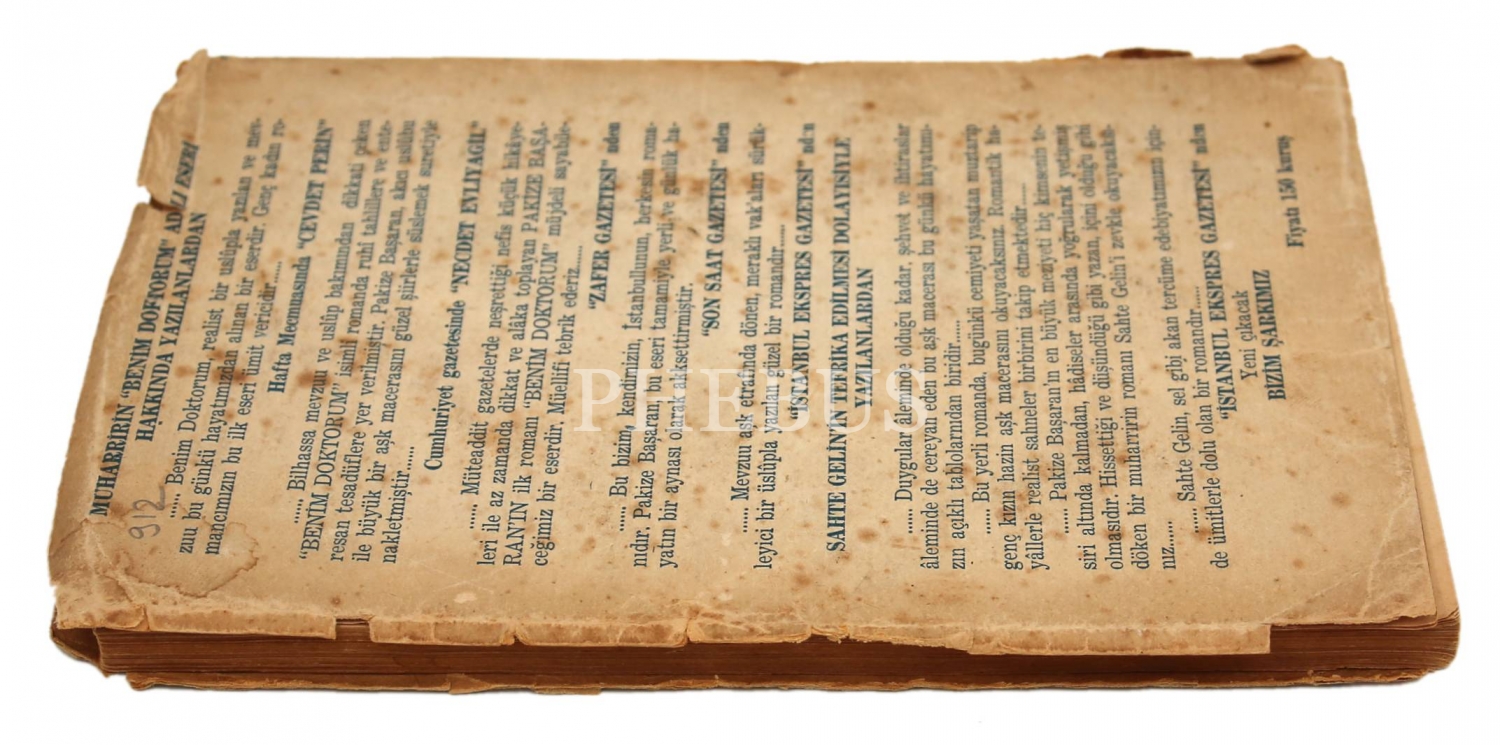 MUHARRİRİN "BENİM DOKTORUM" ADLI ESERİ
HAKKINDA YAZILANLARDAN
...... Benim Doktorum, realist bir uslüpla yazılan ve mev-
zuu bu günkü hayatımızdan alınan bir eserdir. Genç kadın ro-
mancımızın bu ilk eseri ümit vericidir......
Hafta Mecmuasında "CEVDET PERİN"
...... Bilhassa mevzuu ve uslüp bakımından dikkati çeken
"BENİM DOKTORUM" isimli romanda ruhi tahlillere ve ente-
resan tesadüflere yer verilmiştir. Pakize Başaran, akıcı uslübu
ile büyük bir aşk macerasını güzel şiirlerle süslemek suretiyle
nakletmiştir......
Cumhuriyet gazetesinde "NECİDET EVLİYAGİL"
...... Müteaddit gazetelerde neşrettiği nefis küçük hikâye-
leri ile az zamanda dikkat ve alâka toplayan PAKİZE BAŞA-
RAN'IN ilk romanı "BENİM DOKTORUM" müjdeli sayabile-
ceğimiz bir eserdir, Müellifi tebrik ederiz......
"ZAFER GAZETESİ" nden
...... Bu bizim, kendimizin, İstanbullunun, herkesin roma-
nıdır. Pakize Başaran, bu eseri tamamiyle yerli ve günlük ha-
yatın bir aynası olarak aksettirmiştir.
"SON SAAT GAZETESİ" nden
...... Mevzuu aşk etrafında dönen, meraklı vak'aları sürük-
leyici bir üslüpla yazılan güzel bir romandır......
"İSTANBUL EKSPRES GAZETESİ" nden
SAHTE GELİN'İN TEFRİKA EDİLMESİ DOLAYISİYLE
YAZILANLARDAN
...... Duygular âleminde olduğu kadar, şehvet ve ihtiraslar
âleminde de cereyan eden bu aşk macerası bu günkü hayatımı-
zın açıklı tablolarından biridir......
...... Bu yerli romanda, bugünkü cemiyeti yaşatan muztarip
genç kızın hazin aşk macerasını okuyacaksınız. Romantik ha-
yâllerle realist sahneler birbirini takip etmektedir......
...... Pakize Başaran'ın en büyük meziyeti hiç kimsenin te-
siri altında kalmadan, hâdiseler arasında yoğrularak yetişmiş
olmasıdır. Hissettiği ve düşündüğü gibi yazan, içini olduğu gibi
döken bir muharririn romanı Sahte Gelin'i zevkle okuyacaksı-
nız......
...... Sahte Gelin, sel gibi akan tercüme edebiyatımızın için-
de ümitlerle dolu olan bir romandır......
"İSTANBUL EKSPRES GAZETESİ" nden
Yeni çıkacak
BİZİM ŞARKIMIZ
Fiyatı 150 kuruş
912
PHEBUS